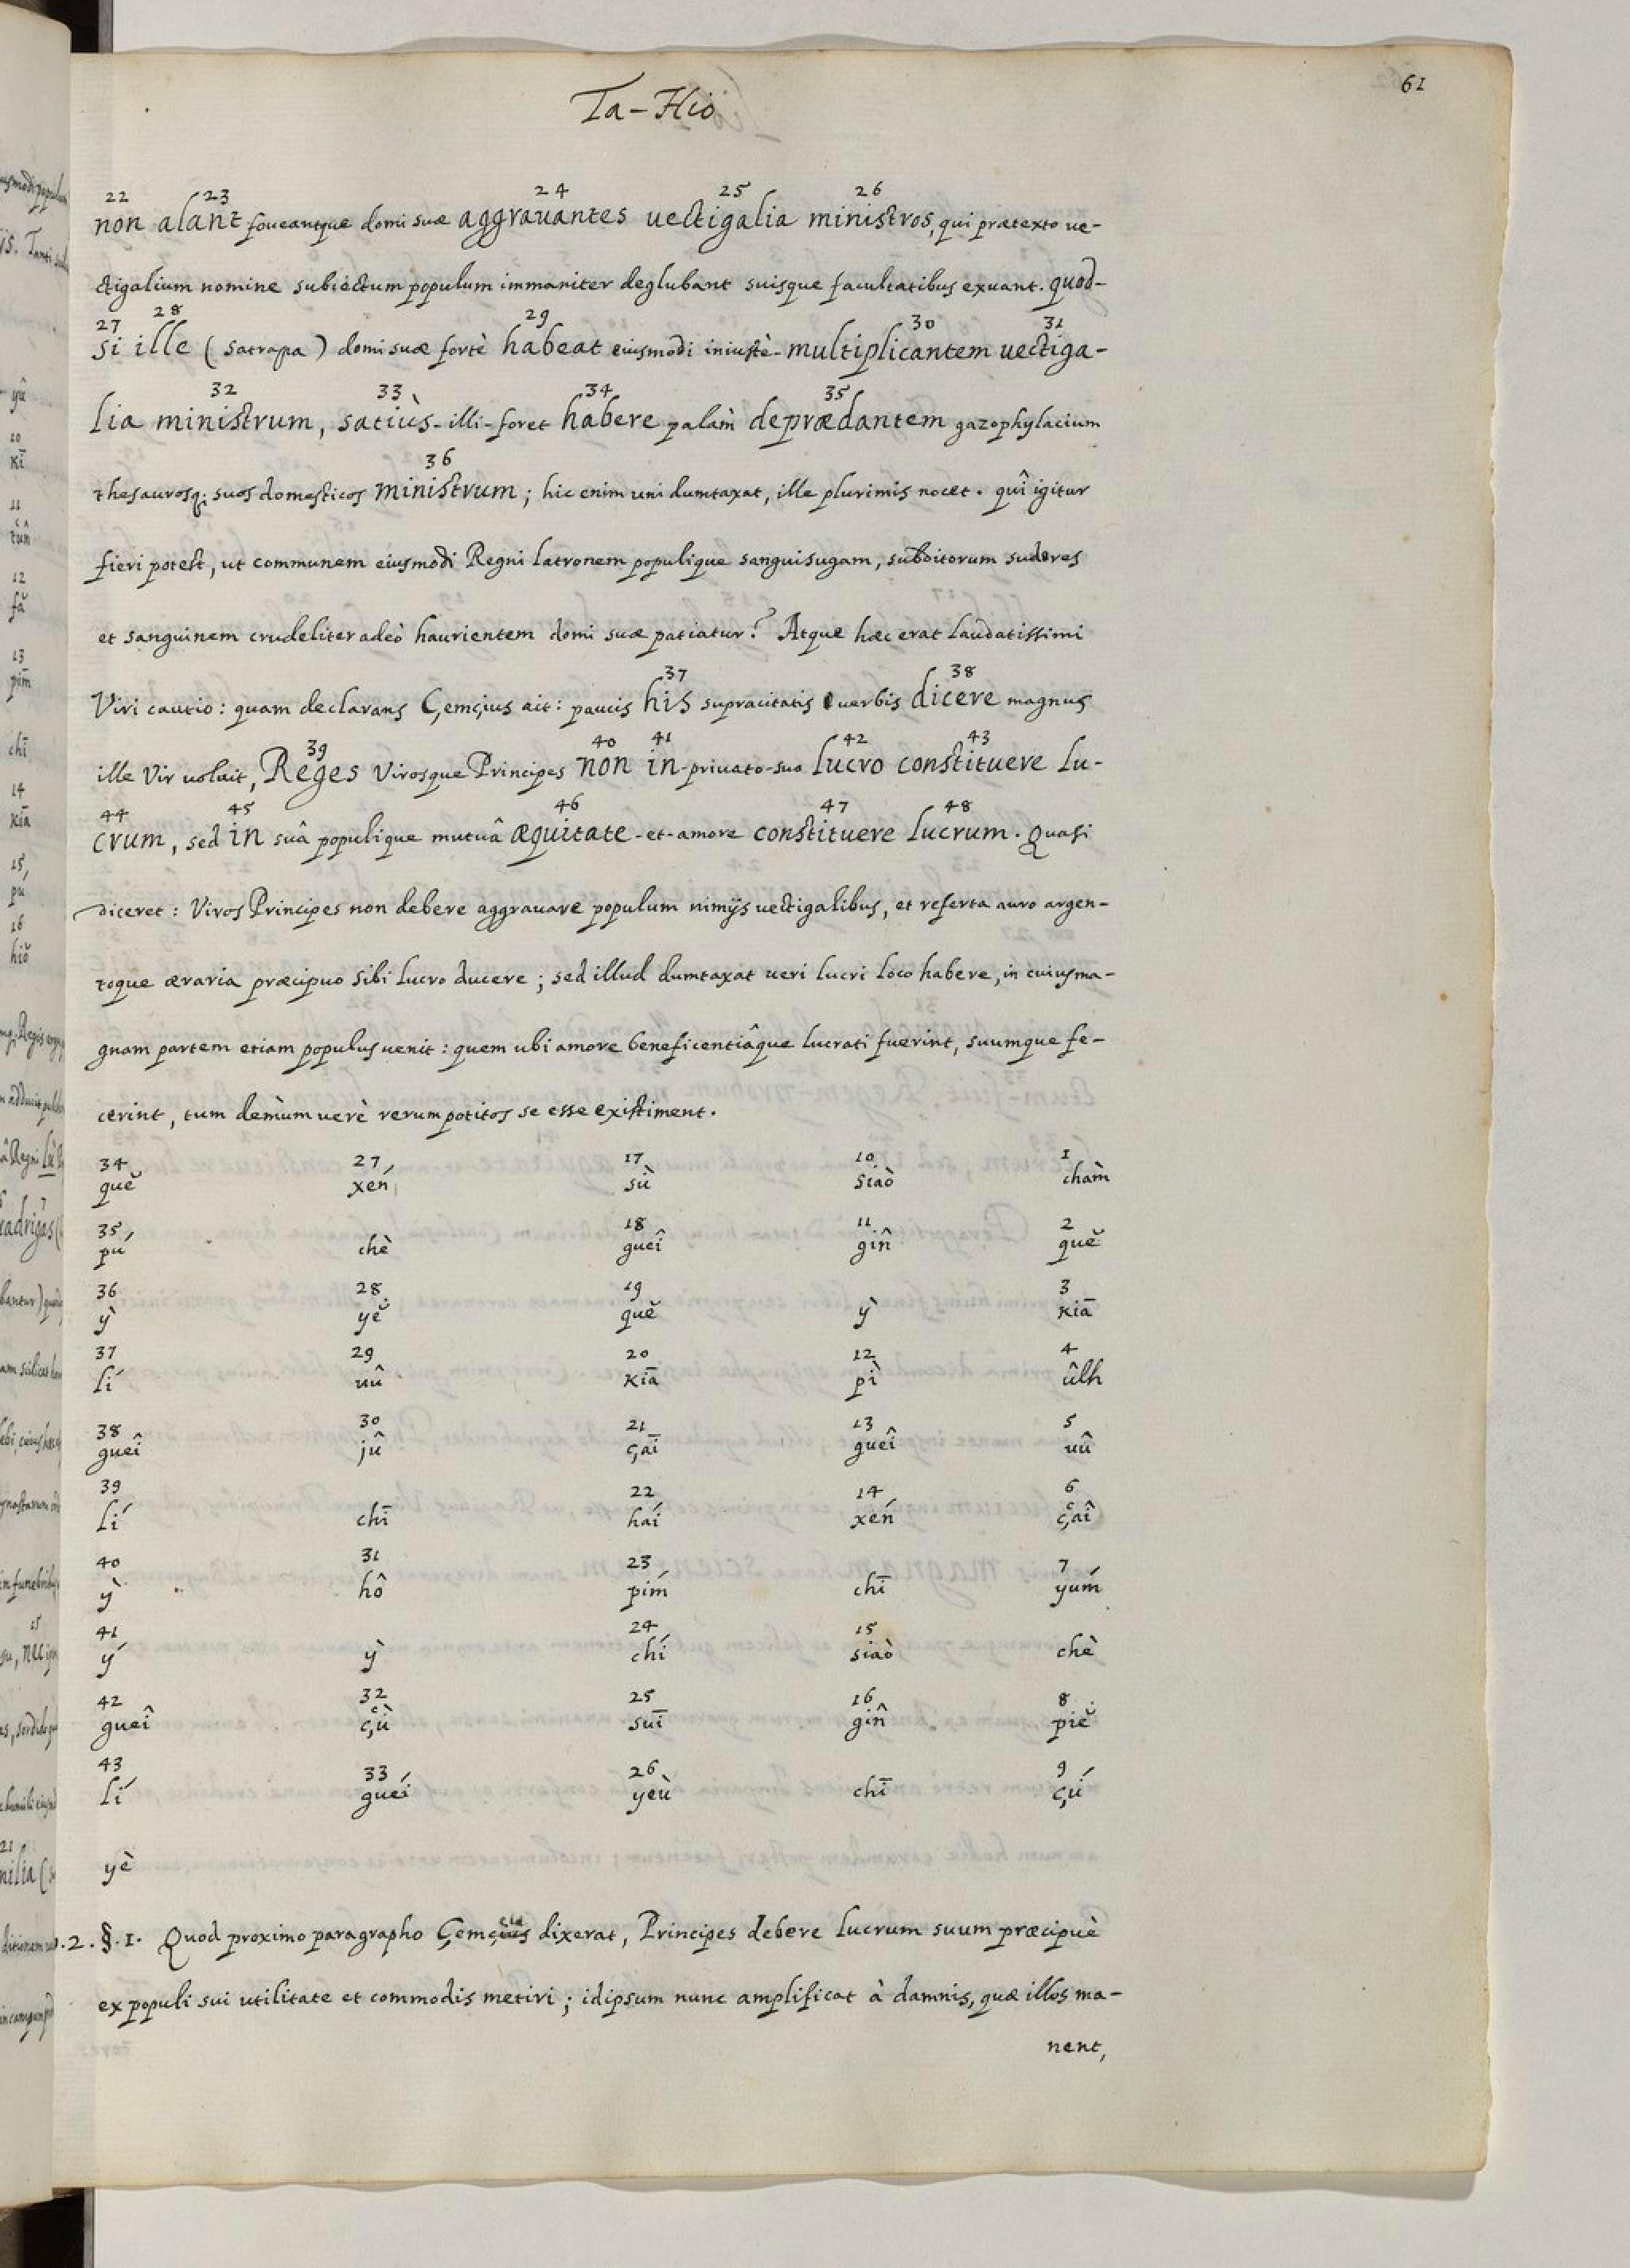 61
Ta-Hio
22 23 24 25 26
non alant foueantque domi suæ aggrauantes uectigalia ministros, qui prætexto ue-
ctigalium nomine subiectum populum immaniter deglubant suisque facultatibus exuant. quod-
27 28 29 30 31
si ille (satrapa) domi suæ fortè habeat eiusmodi iniustè-multiplicantem uectiga-
32 33 34 35
lia ministrum, satiùs-illi-foret habere palàm deprædantem gazophylacium
36
thesaurosq; suos domesticos ministrum; hic enim uni dumtaxat, ille plurimis nocet. quî igitur
fieri potest, ut communem eiusmodi Regni latronem populique sanguisugam, subditorum sudores
et sanguinem crudeliter adeò haurientem domi suæ patiatur? Atque hæc erat laudatissimi
37 38
Viri cautio: quam declarans Çemçius ait: paucis his supracitatis uerbis dicere magnus
39 40 41 42 43
ille Vir uoluit, Reges Virosque Principes non in-priuato-suo lucro constituere lu-
44 45 46 47 48
crum, sed in suâ populique mutuâ æquitate-et-amore constituere lucrum. Quasi
diceret: Viros Principes non debere aggrauare populum nimijs uectigalibus, et referta auro argen-
toque æraria præcipuo sibi lucro ducere; sed illud dumtaxat ueri lucri loco habere, in cuius ma-
gnam partem etiam populus uenit: quem ubi amore beneficentiâque lucrati fuerint, suumque fe-
cerint, tum demùm uerè rerum potitos se esse existiment.
34 27 17 10 1
quĕ xén sù siaò chàm
35 18 11 2
pú chè gueî gîn quĕ
36 28 19 3
ỳ yĕ quĕ ỳ kiā
37 29 20 12 4
lí uû kiā pì ûlh
38 30 21 13 5
gueî jû çaī gueî uû
39 22 14 6
lí chī haí xén çaî
40 31 23 7
ỳ hô pím chī yúm
41 24 15
ý ỳ chí siaò chè
42 32 25 16 8
gueî çù suī gîn piĕ
43 33 26 9
lí gueí yeù chī çú
yè
.2.§.1. Quod proximo paragrapho dixerat, Principes debere lucrum suum præcipuè
ex populi sui utilitate et commodis metiri; idipsum nunc amplificat à damnis, quæ illos ma-
nent,